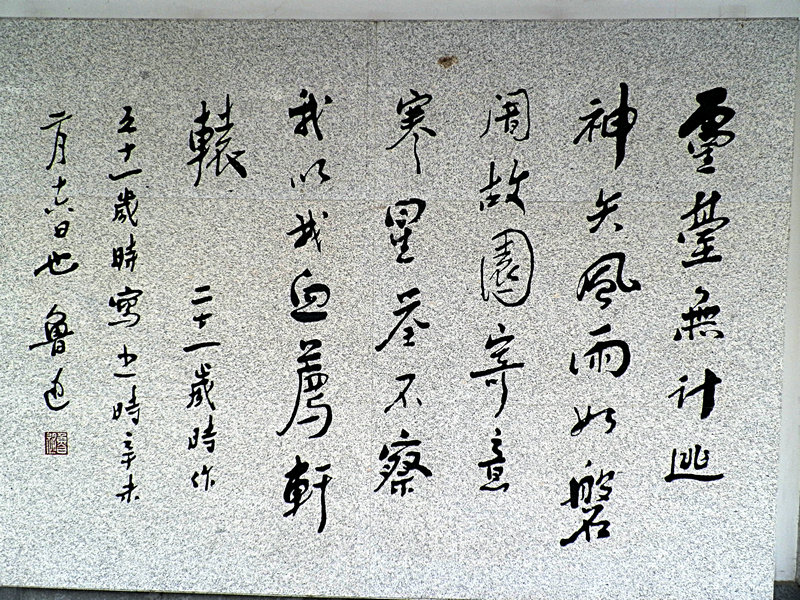 靈臺無計逃
神矢風雨如磐
闇故園寄意
寒星荃不察
我以我血薦軒
轅 二十一歲時作
五十一歲時寫之時辛未
二月十六日也 魯迅